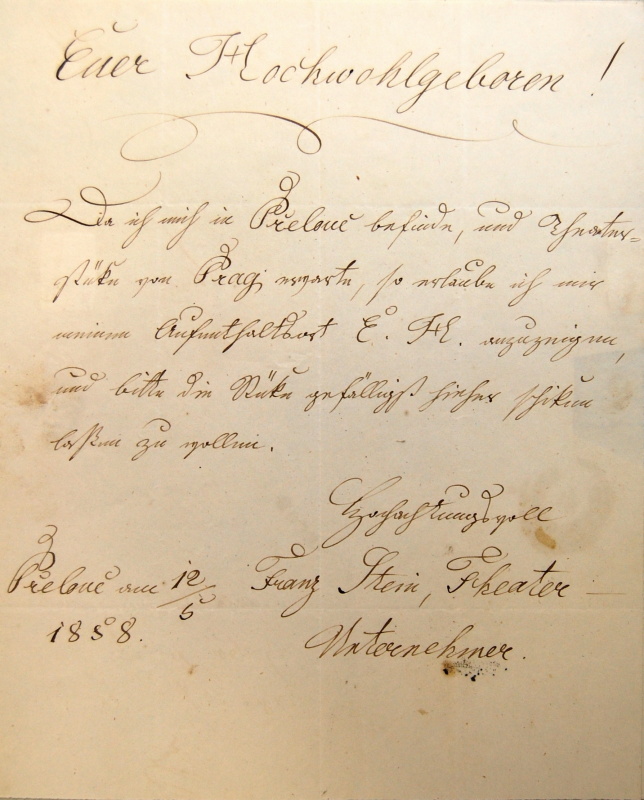 Euer Hochwohlgeboren!
Da ich mich in Prelouč befinde, und Theater=
stüke von Prag erwarte, so erlaube ich mir
meinen Aufenthaltsort E. H. anzuzeigen,
und bitte die Stüke gefälligst hieher schiken
laßen zu wollen.
Hochachtungsvoll
Prelouč am 12/5 Franz Stein, Theater-
1858. Unternehmer.